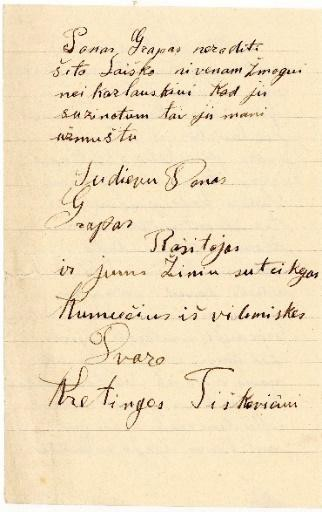 Ponas Grapas neroditi
šito Laiško nivenam Žmogui
nei kazlauskui Kad jis
sužinotum tai jis mani
užmuštu
Sudievu Ponas
Grapas
Rašitojas
ir jums Žiniu suteikejas
Kumečius iš vilimiskes
Dvaro
Kretingos Tiškevičiui